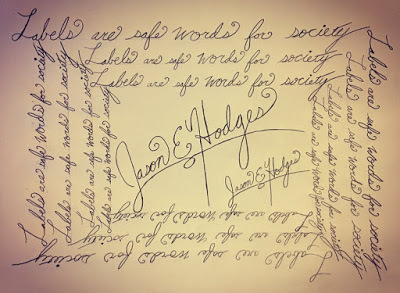 Labels are safe words for society
Labels are safe words for society
Labels are safe words for society
Labels are safe words for society
Labels are safe words for society
Labels are safe words for society
Labels are safe words for society
Jason E Hodges
Jason E Hodges
Labels are safe words for society
Labels are safe words for society
Labels are safe words for society
Labels are safe words for society
Labels are safe words for society
Labels are safe words for society
Labels are safe words for society